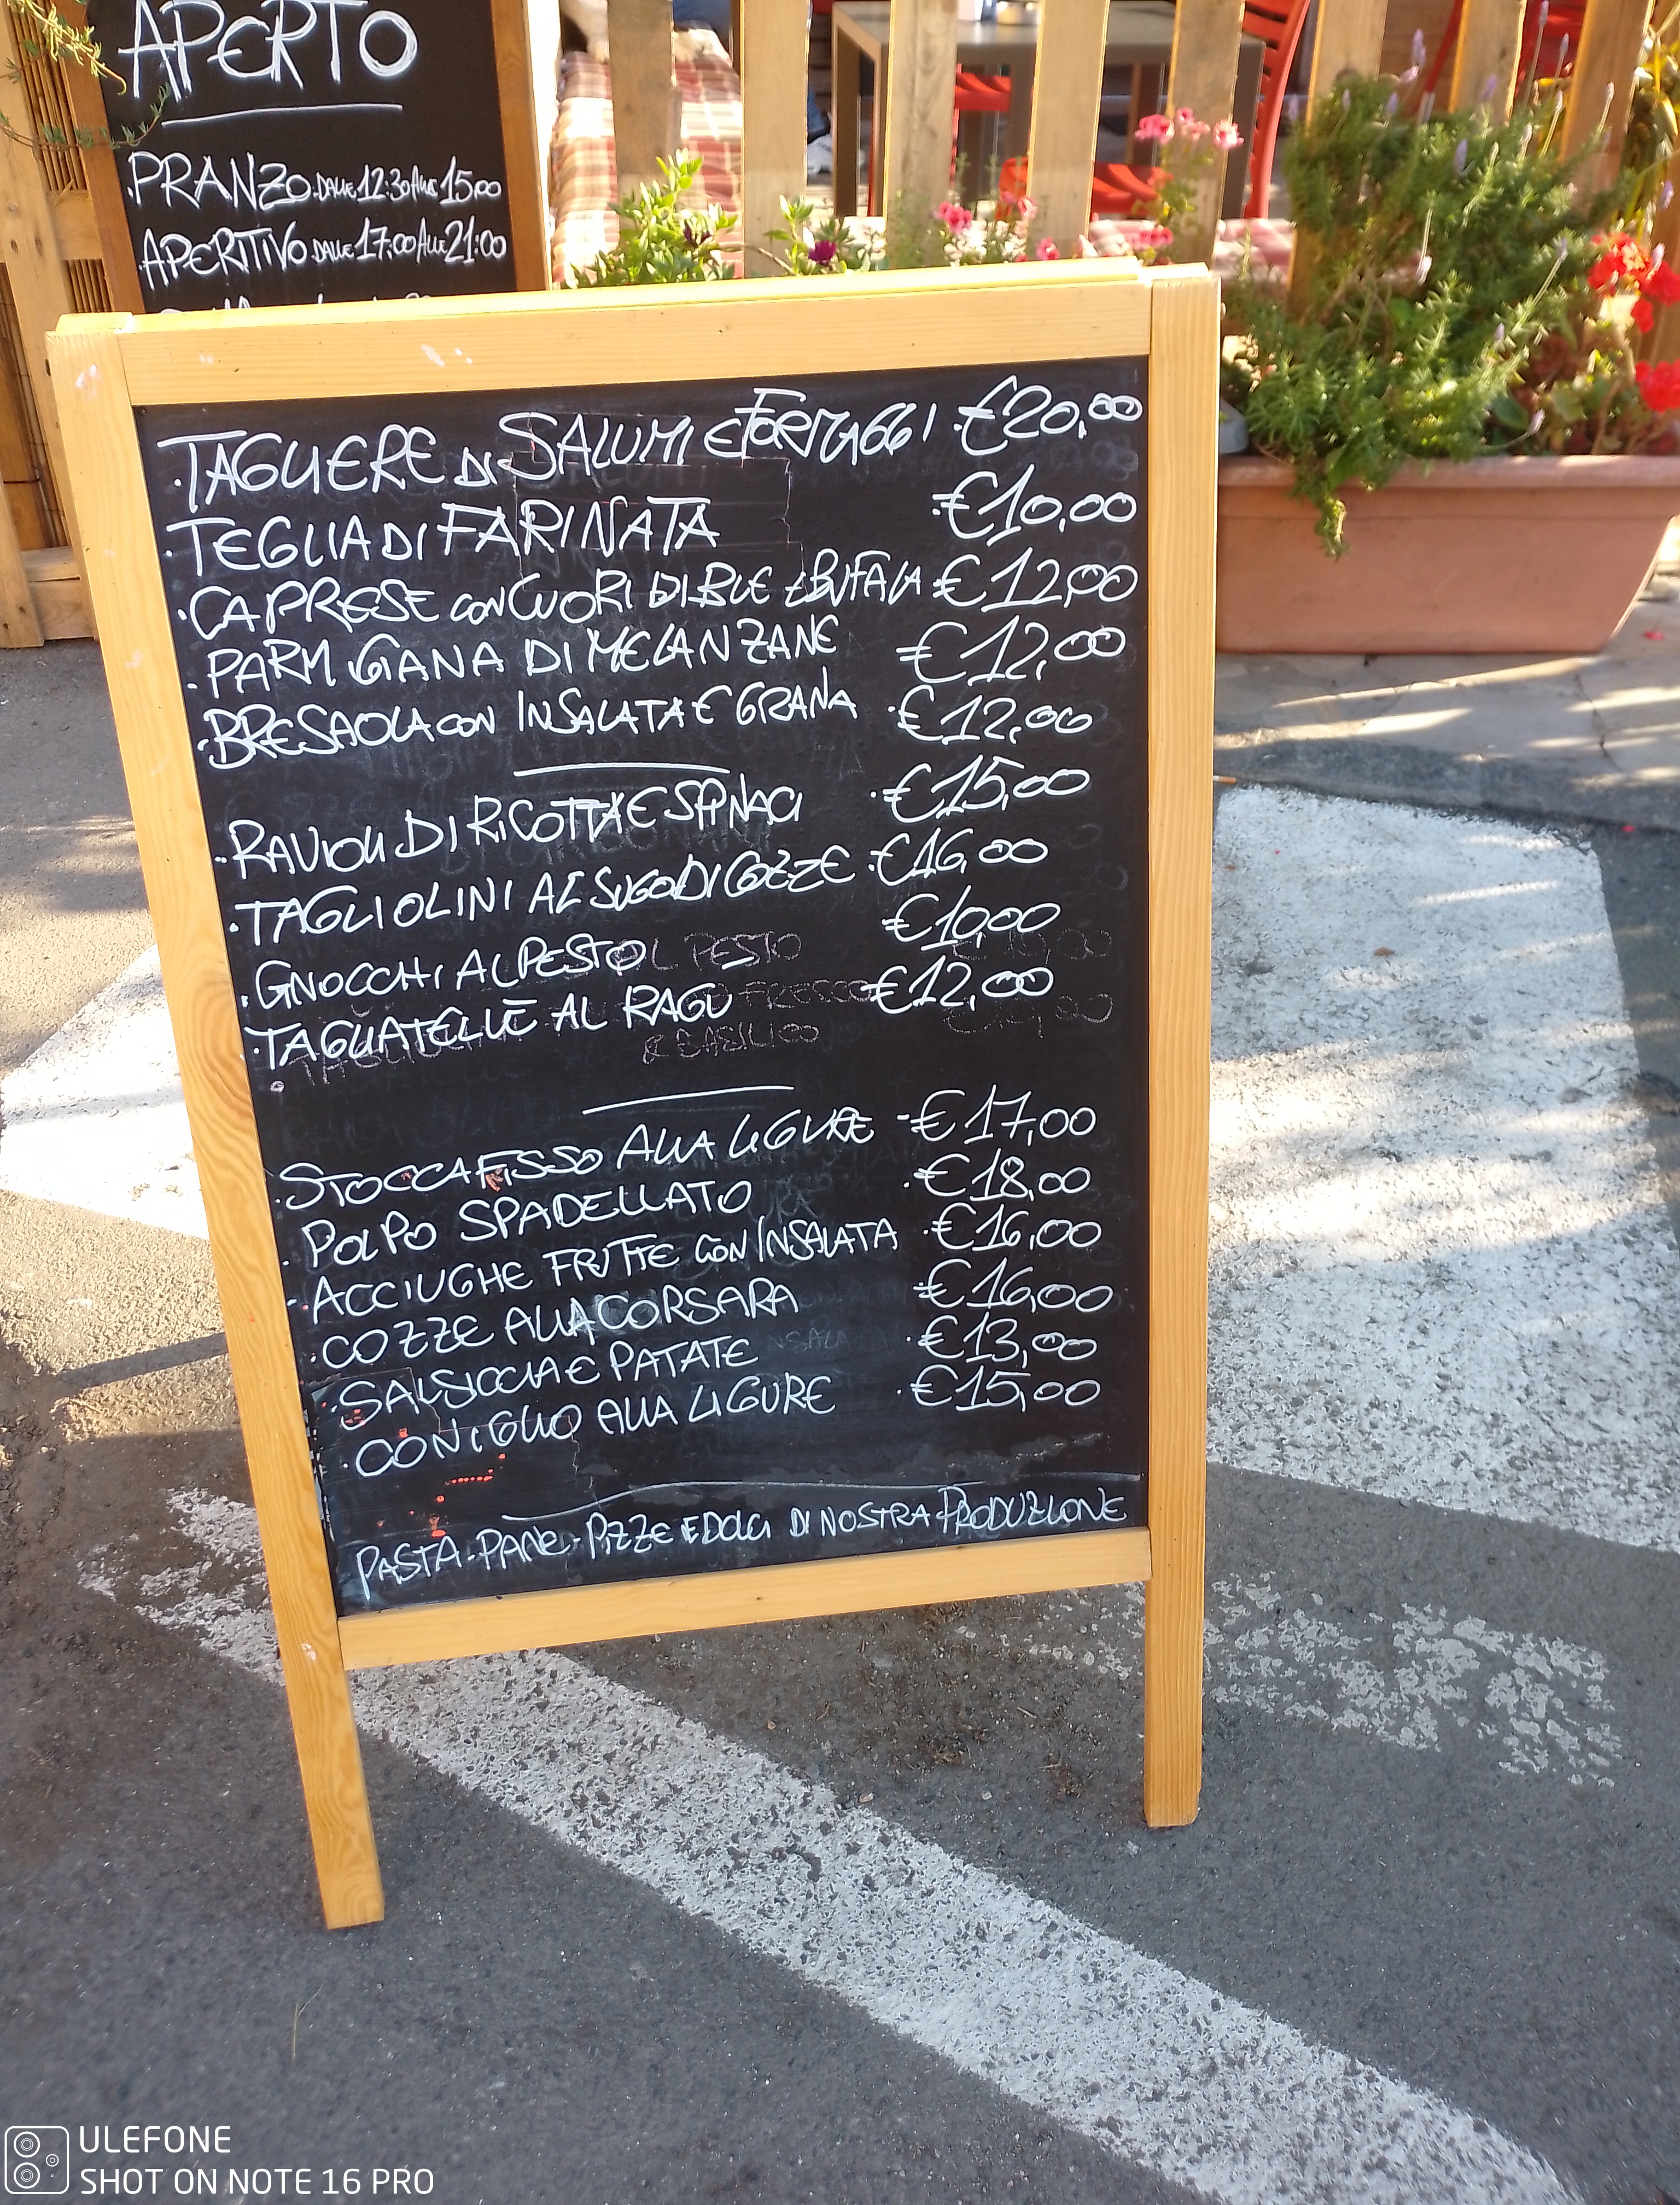 APERTO
PRANZO DALLE 12:30 ALLE 15:00
APERITIVO DALLE 17:00 ALLE 21:00
· TAGLIERE DI SALUMI E FORMAGGI · €20,00
· TEGLIA DI FARINATA · €10,00
· CAPRESE CON CUORI DI BUE E BUFALA €12,00
· PARMIGIANA DI MELANZANE €12,00
· BRESAOLA CON INSALATA E GRANA · €12,00
· RAVIOLI DI RICOTTA E SPINACI · €15,00
· TAGLIOLINI AL SUGO DI COZZE · €16,00
· GNOCCHI AL PESTO €10,00
· TAGLIATELLE AL RAGÙ €12,00
· STOCCAFISSO ALLA LIGURE - €17,00
· POLPO SPADELLATO · €18,00
· ACCIUGHE FRITTE CON INSALATA · €16,00
· COZZE ALLA CORSARA €16,00
· SALSICCIA E PATATE · €13,00
· CONIGLIO ALLA LIGURE · €15,00
PASTA - PANE - PIZZE E DOLCI DI NOSTRA PRODUZIONE
ULEFONE
SHOT ON NOTE 16 PRO